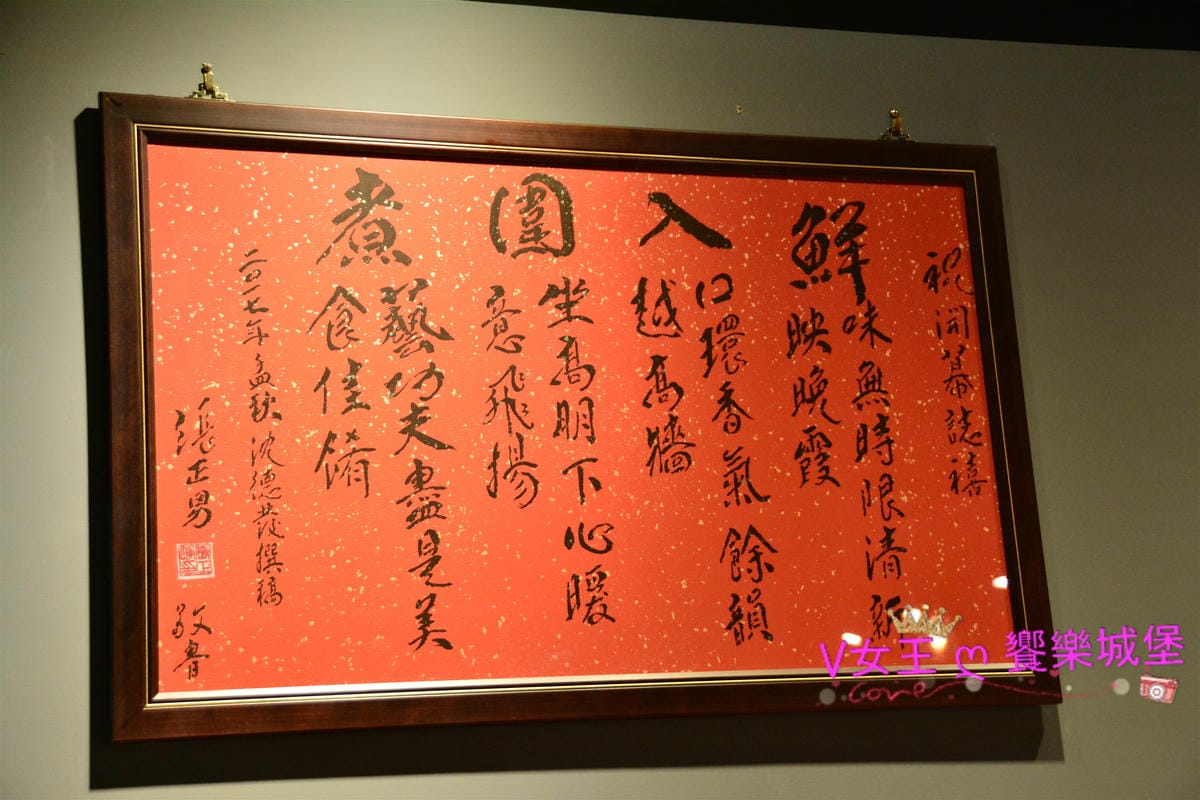 祝開幕誌禧
鮮味無時限清新
映晚霞
入口環香氣餘韻
越高牆
圍坐高朋下心暖
意飛揚
煮藝功夫盡是美
食佳餚
二〇一七年孟秋 沈德茂撰稿
張正男
敬書
V女王 ღ 饗樂城堡
Love